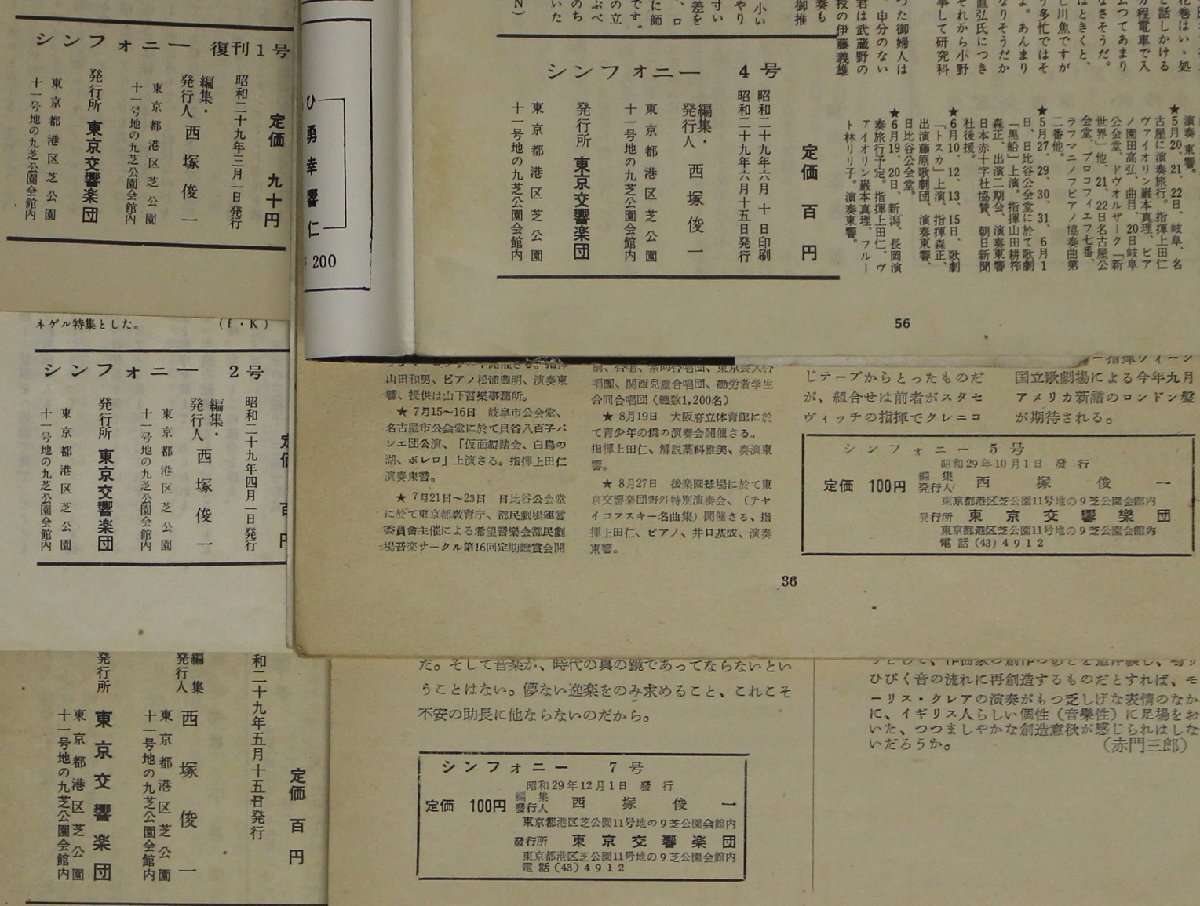 シンフォニー 復刊1号
定価 九十円
昭和二十九年三月一日発行
編集・発行人 西塚俊一
東京都港区芝公園
十一号地の九芝公園会館内
発行所 東京交響楽団
東京都港区芝公園
十一号地の九芝公園会館内
ひ勇幸響仁
200
シンフォニー 4号
定価 百円
昭和二十九年六月十日印刷
昭和二十九年六月十五日発行
編集・発行人 西塚俊一
東京都港区芝公園
十一号地の九芝公園会館内
発行所 東京交響楽団
東京都港区芝公園
十一号地の九芝公園会館内
演奏、東響。
★5月20、21、22日、岐阜、名
古屋に演奏旅行。指揮上田仁
ヴァイオリン巌本真理、ピア
ノ園田高弘、曲目、20日岐阜
公会堂、ドヴォルザーク「新
世界」他、21、22日名古屋公
会堂、プロコフィエフ七番、
ラフマニノフピアノ協奏曲第
二番他。
★5月27、29、30、31、6月1
日、日比谷公会堂に於て歌劇
「黒船」上演。指揮山田耕筰
森正、出演二期会、演奏東響
日本赤十字社協賛、朝日新聞
社後援。
★6月10、12、13、15日、歌劇
「トスカ」上演、指揮森正、
出演藤原歌劇団、演奏東響、
日比谷公会堂。
★6月19、20日、新潟、長岡演
奏旅行予定。指揮上田仁、ヴ
ァイオリン巌本真理、フルー
ト林リリ子、演奏東響。
56
ネゲル特集とした。 (f・K)
シンフォニー 2号
定価 百円
昭和二十九年四月一日発行
編集・発行人 西塚俊一
東京都港区芝公園
十一号地の九芝公園会館内
発行所 東京交響楽団
東京都港区芝公園
十一号地の九芝公園会館内
山田和男、ピアノ松浦豊明、演奏東
響、提供は山下音楽事務所。
★ 7月15～16日 岐阜市公会堂、
名古屋市公会堂に於て貝谷八百子バ
レエ団公演、「仮面舞踏会、白鳥の
湖、ボレロ」上演さる。指揮上田仁
演奏東響。
★ 7月21日～23日 日比谷公会堂
に於て東京都教育庁、都民劇場運営
委員会主催による希望音楽会都民劇
場音楽サークル第16回定期鑑賞会開
唱團、関西児童合唱団、勤労者学生
合同合唱団(総数1,200名)
★ 8月19日 大阪府立体育館に於
て青少年の為の演奏会開催さる。
指揮上田仁、解説藁科雅美、奏演東
響。
★ 8月27日 後楽園球場に於て東
京交響楽団野外特別演奏会、(チャ
イコフスキー名曲集)開催さる、指
揮上田仁、ピアノ、井口基成、演奏
東響。
じテープからとったものだ
が、組合せは前者がスタセ
ヴィッチの指揮でクレニコ
国立歌劇場による今年九月
アメリカ新譜のロンドン盤
が期待される。
シンフォニー 5号
昭和29年10月1日 発行
定価 100円 編集発行人 西塚俊一
東京都港区芝公園11号地の9芝公園会館内
発行所 東京交響樂団
東京都港区芝公園11号地の9芝公園会館内
電話(43)4912
36
定価 百円
和二十九年五月十五日発行
編集発行人 西塚俊一
東京都港区芝公園
十一号地の九芝公園会館内
発行所 東京交響楽団
東京都港区芝公園
十一号地の九芝公園会館内
だ。そして音楽が、時代の真の鏡であってならないとい
うことはない。儚ない迎楽をのみ求めること、これこそ
不安の助長に他ならないのだから。
シンフォニー 7号
昭和29年12月1日 發行
定価 100円 編集發行人 西塚俊一
東京都港区芝公園11号地の9芝公園会館内
發行所 東京交響楽団
東京都港区芝公園11号地の9芝公園会館内
電話(43)4912
ひびく音の流れに再創造するものだとすれば、モ
ーリス・クレアの演奏がもつ乏しげな表情のなか
に、イギリス人らしい個性(音樂性)に足場をお
いた、つつましやかな創造意欲が感じられはしな
いだろうか。 (赤門三郎)